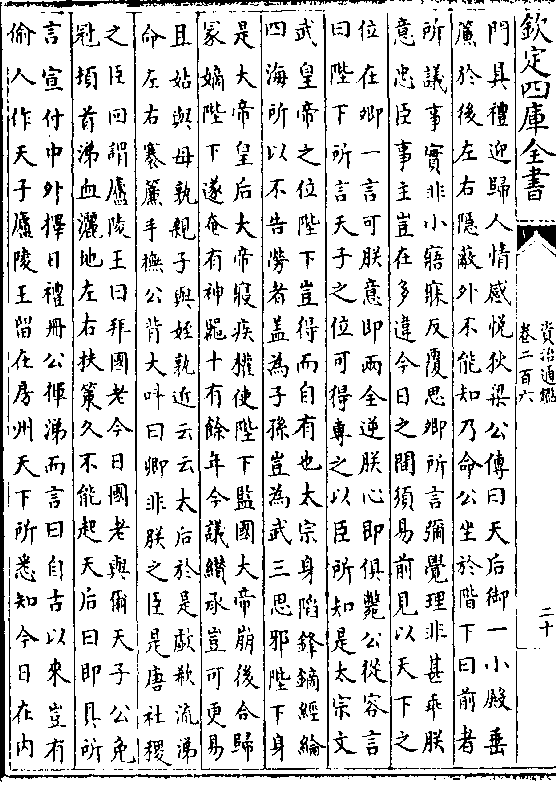 門具禮迎歸人情感悅狄梁公傳曰天后御一小殿垂
簾於後左右隱蔽外不能知乃命公坐於階下曰前者
所議事實非小寤寐反覆思卿所言彌覺理非甚乖朕
意忠臣事主豈在多違今日之間須易前見以天下之
位在卿一言可朕意即兩全逆朕心即俱斃公從容言
曰陛下所言天子之位可得專之以臣所知是太宗文
武皇帝之位陛下豈得而自有也太宗身陷鋒鏑經綸
四海所以不告勞者蓋為子孫豈為武三思邪陛下身
是大帝皇后大帝寢疾權使陛下監國大帝崩後合歸
冡嫡陛下遂奄有神器十有餘年今議纉承豈可更易
且姑與母孰親子與姪孰近云云太后於是歔欷流涕
命左右褰簾手撫公背大叫曰卿非朕之臣是唐社稷
之臣回謂廬陵王曰拜國老今日國老與爾天子公免
冠頓首涕血灑地左右扶策久不能起天后曰即具所
言宣付中外擇日禮冊公揮涕而言曰自古以來豈有
偷人作天子廬陵王留在房州天下所悉知今日在内
欽定四庫全書
資治通鑑
卷二百六
二十